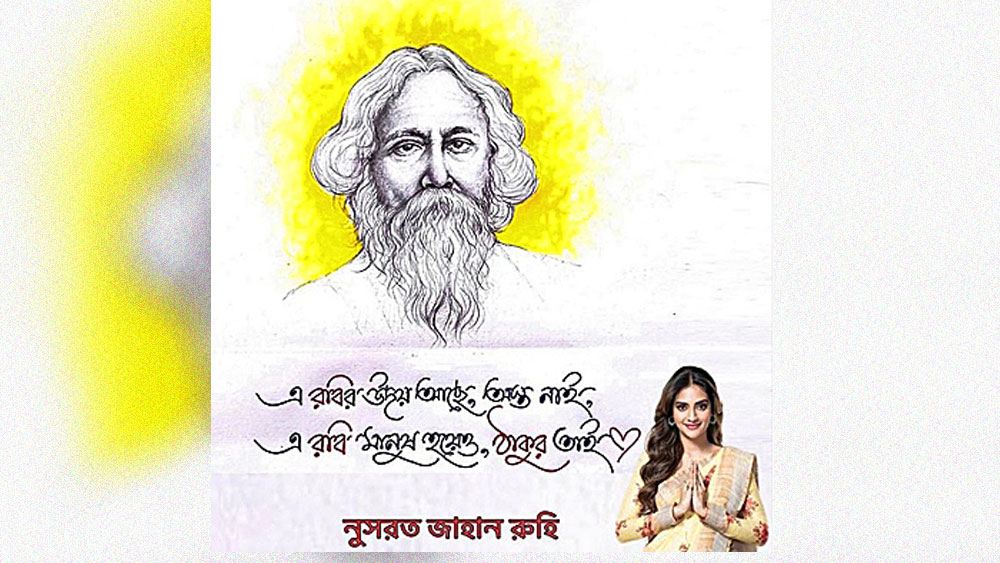 এ রবির উদয় আছে, অস্ত নাই,
এ রবি মানুষ হয়েও, ঠাকুর তাই
নুসরত জাহান রুহি